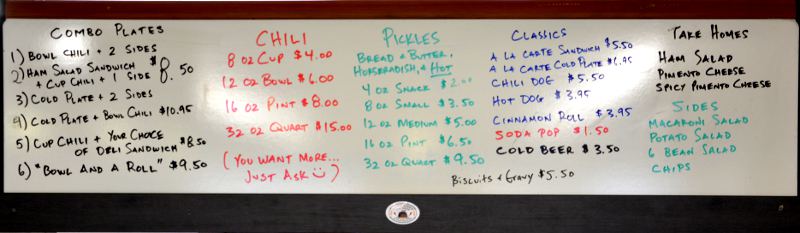 COMBO PLATES
1) BOWL CHILI + 2 SIDES
2) HAM SALAD SANDWICH + CUP CHILI + 1 SIDE $8.50
3) COLD PLATE + 2 SIDES
4) COLD PLATE + BOWL CHILI $10.95
5) CUP CHILI + YOUR CHOICE
OF DELI SANDWICH $8.50
6) "BOWL AND A ROLL" $9.50
CHILI
8 OZ CUP $4.00
12 OZ BOWL $6.00
16 OZ PINT $8.00
32 OZ QUART $15.00
(YOU WANT MORE...
JUST ASK)
PICKLES
BREAD + BUTTER,
HORSERADISH, + HOT
4 OZ SNACK $2.00
8 OZ SMALL $3.50
12 OZ MEDIUM $5.00
16 OZ PINT $6.50
32 OZ QUART $9.50
CLASSICS
A LA CARTE SANDWICH $5.50
A LA CARTE COLD PLATE $6.95
CHILI DOG $5.50
HOT DOG $3.95
CINNAMON ROLL $3.95
SODA POP $1.50
COLD BEER $3.50
BISCUITS + GRAVY $5.50
TAKE HOMES
HAM SALAD
PIMENTO CHEESE
SPICY PIMENTO CHEESE
SIDES
MACARONI SALAD
POTATO SALAD
6 BEAN SALAD
CHIPS